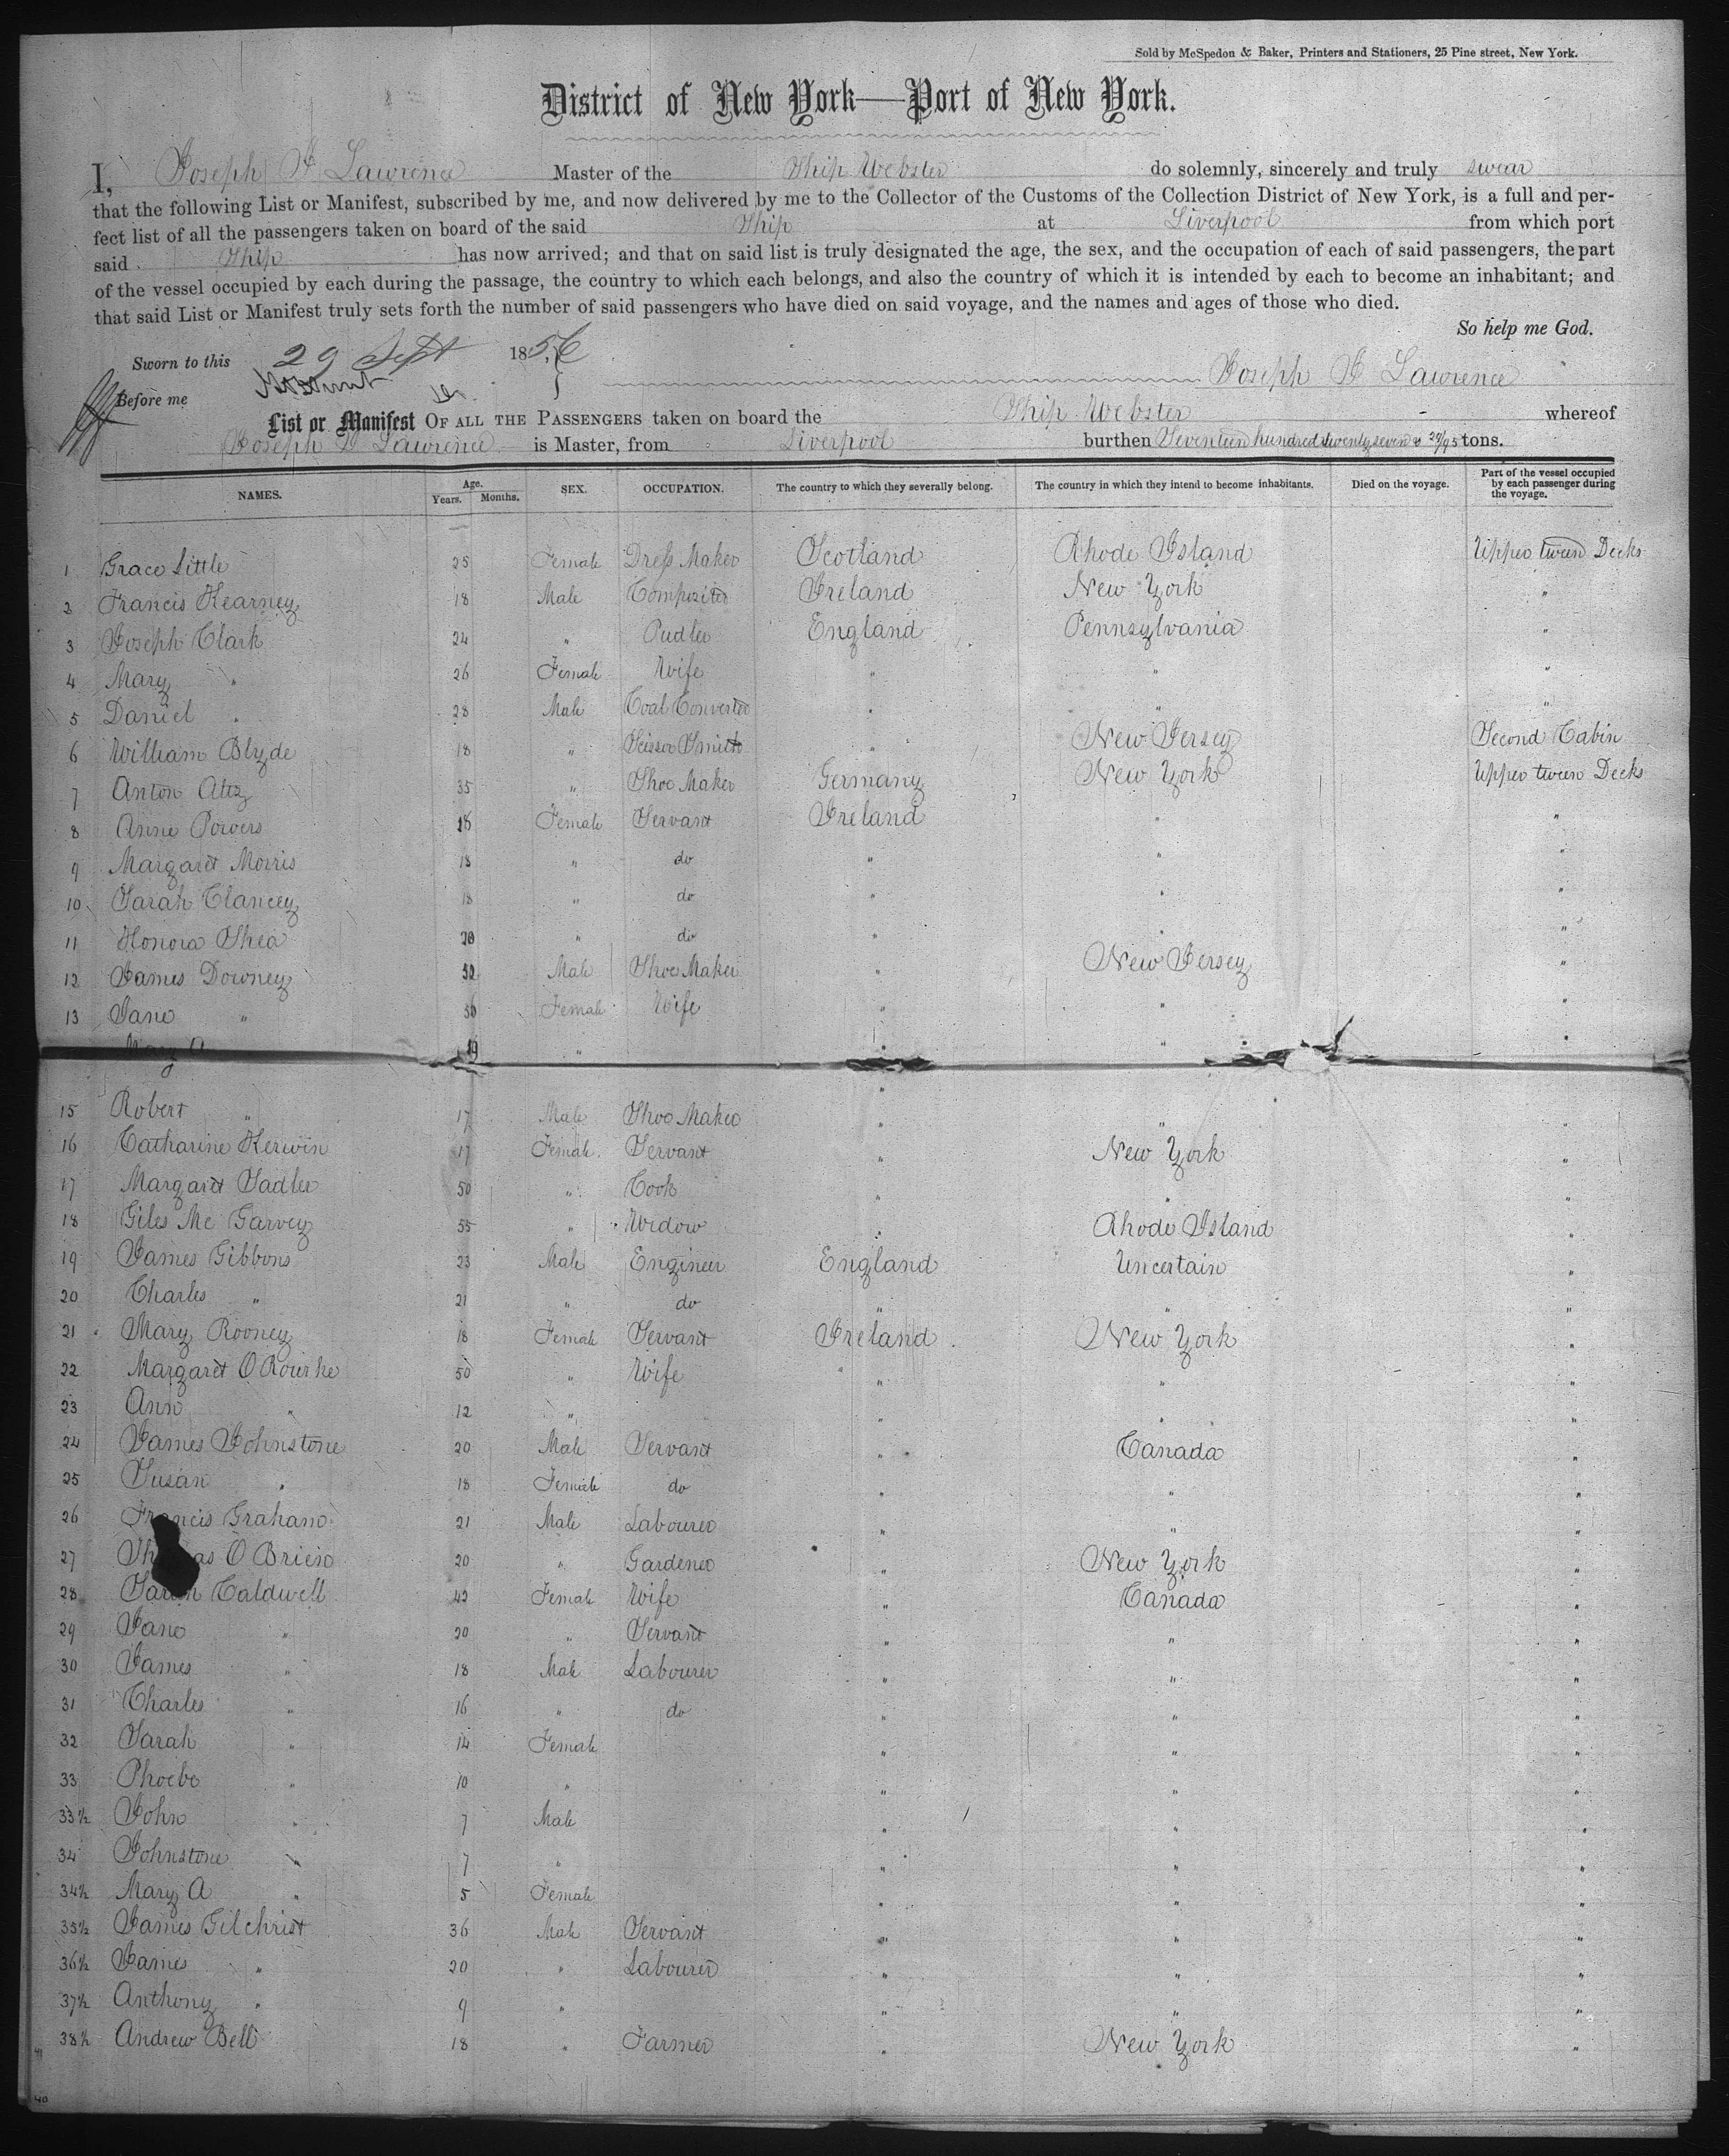 Sold by McSpedon & Baker, Printers and Stationers, 25 Pine street, New York.
District of New York—Port of New York.
I, Joseph J Lawrence Master of the Ship Webster do solemnly, sincerely and truly swear
that the following List or Manifest, subscribed by me, and now delivered by me to the Collector of the Customs of the Collection District of New York, is a full and per-
fect list of all the passengers taken on board of the said Ship at Liverpool from which port
said Ship has now arrived; and that on said list is truly designated the age, the sex, and the occupation of each of said passengers, the part
of the vessel occupied by each during the passage, the country to which each belongs, and also the country of which it is intended by each to become an inhabitant; and
that said List or Manifest truly sets forth the number of said passengers who have died on said voyage, and the names and ages of those who died.
So help me God.
Sworn to this 29 Sept 1856
Joseph J Lawrence
Before me
List or Manifest OF ALL THE PASSENGERS taken on board the Ship Webster whereof
Joseph J Lawrence is Master, from Liverpool burthen Seventeen hundred twenty seven & /95 tons.
NAMES. Age. Years. Months. SEX. OCCUPATION. The country to which they severally belong. The country in which they intend to become inhabitants. Died on the voyage. Part of the vessel occupied by each passenger during the voyage.
1 Grace Little 25 Female Dress Maker Scotland Rhode Island Upper tween Decks
2 Francis Kearney 18 Male Compositor Ireland New York "
3 Joseph Clark 24 " Pudler England Pennsylvania "
4 Mary " 26 Female Wife " " "
5 Daniel " 28 Male Coal Converter " " "
6 William Blyde 18 " Scissor Smith " New Jersey Second Cabin
7 Anton 35 " Shoe Maker Germany New York Upper tween Decks
8 Anne Powers 18 Female Servant Ireland " "
9 Margaret Morris 18 " do " " "
10 Sarah Clancey 18 " do " " "
11 Honora Shea 20 " do " " "
12 James Downey 52 Male Shoe Maker " New Jersey "
13 Jane " 50 Female Wife " " "
Mary A 19 " " " "
15 Robert " 17 Male Shoe Maker " " "
16 Catharine Kerwin 17 Female Servant " New York "
17 Margaret Sadler 50 " Cook " " "
18 Giles Mc Garvey 55 " Widow " Rhode Island "
19 James Gibbons 23 Male Engineer England Uncertain "
20 Charles " 21 " do " " "
21 Mary Rooney 18 Female Servant Ireland New York "
22 Margaret O Rourke 50 " Wife " " "
23 Ann " 12 " " " "
24 James Johnstone 20 Male Servant " Canada "
25 Susan " 18 Female do " " "
26 Francis Graham 21 Male Labourer " " "
27 Thomas O Brien 20 " Gardener " New York "
28 Sarah Caldwell 42 Female Wife " Canada "
29 Jane " 20 " Servant " " "
30 James " 18 Male Labourer " " "
31 Charles " 16 " do " " "
32 Sarah " 14 Female " " "
33 Phoebe " 10 " " " "
33½ John " 7 Male " " "
34 Johnstone " 7 " " " "
34½ Mary A " 5 Female " " "
35½ James Gilchrist 36 Male Servant " " "
36½ James " 20 " Labourer " " "
37½ Anthony " 9 " " " "
38½ Andrew Bell 18 " Farmer " New York "